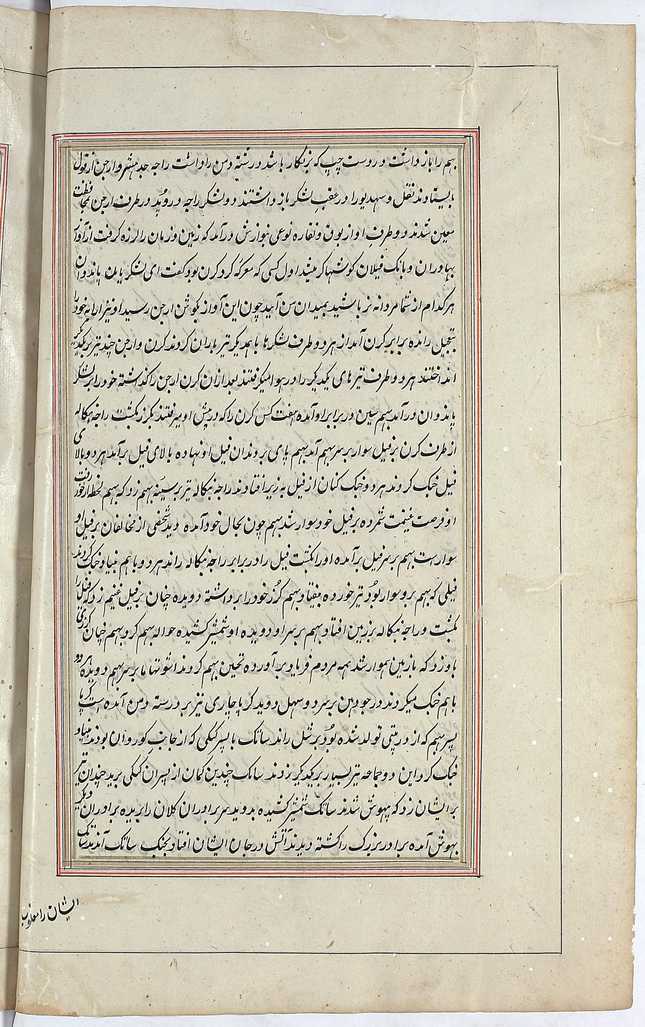 بهم را باز داشت و در دست چپ که بزنگار باشد درشته دمن را داشت راجه جد هشتر و ارجن از قول
بایستادند نقل و سهدیو را در عقب لشکر باز داشتند دو لشکر راجه درو پد در طرف ارجن محافظت
معین شدند دو طرف آواز بون و نقاره نوعی نوازش درآمد که زمین و زمان را لرزه گرفت از آواز
بهادران و بانک فیلان گوشها کر میشد اول کسی که معرکه کرد کرن بود گفت ای لشکریان پاندوان
هر کدام از شما مردانه تر باشید بمیدان من آیید چون این آواز بگوش ارجن رسید او نیز ارابه خود را
بتجیل رانده برابر کرن آمد از هر دو طرف لشکرها با همدیگر تیر باران کردند کرن و ارجن چند تیر بر یکدیگر
انداختند هر دو طرف تیرهای یکدیگر را در هوا میگرفتند بعد از آن کرن ارجن را گذاشته خود را بر لشکر
پاندوان درآمد بهیم سین در برابر او آمده هفت کس کرن را که در پیش او میرفتند بگرز بکشت راجه بنکاله
از طرف کرن بر فیل سوار بر سر بهیم آمد بهیم پای بر دندان فیل او نهاده بالای فیل برآمد هر دو بالای
فیل جنک کردند هر دو جنک کنان از فیل به زیر افتادند راجه بنکاله تیر بر سینه بهیم زد که بهیم لحظه از خود رفت
او فرصت غنیمت شمرده بر فیل خود سوار شد بهیم چون بحال خود آمده دید شخصی از مخالفان بر فیل او
سوار است بهیم بر سر فیل برآمده او را بکشت فیل را در برابر راجه بنکاله راند هر دو باهم بنیاد جنک کردند
فیلی که بهیم بر و سوار بود تیر خورده بیفتاد بهیم گرز خود را برداشته دویده چنان بر فیل غنیم زد که فیل را
بکشت و راجه بنکاله بر زمین افتاد بهیم بر سر او دویده او شمشیر کشیده حواله بهیم کرد بهیم چنان گرزی
باو زد که با زمین هموار شد همه مردم فریاد برآورده تحسین بهیم کردند
باهم جنک میکردند درجودهن بر سر
پسر بهیم که از در پتی تولد شده بود بر شل راند ساتک با پسر کنکی که از جانب کوروان بودند بنیاد
جنک کرد این دو جماعه تیر بسیار بر یکدیگر زدند ساتک چندین کمان از پسران کنکی برید چندان تیر
بر ایشان زد که بیهوش شدند ساتک شمشیر کشیده بدوید سر برادران کلان را بریده برادران دیگر
بهوش آمده برادر بزرگ را کشته دیدند آتش در جان ایشان افتاد بجنک ساتک آمدند ساتک
ایشان را مغلوب